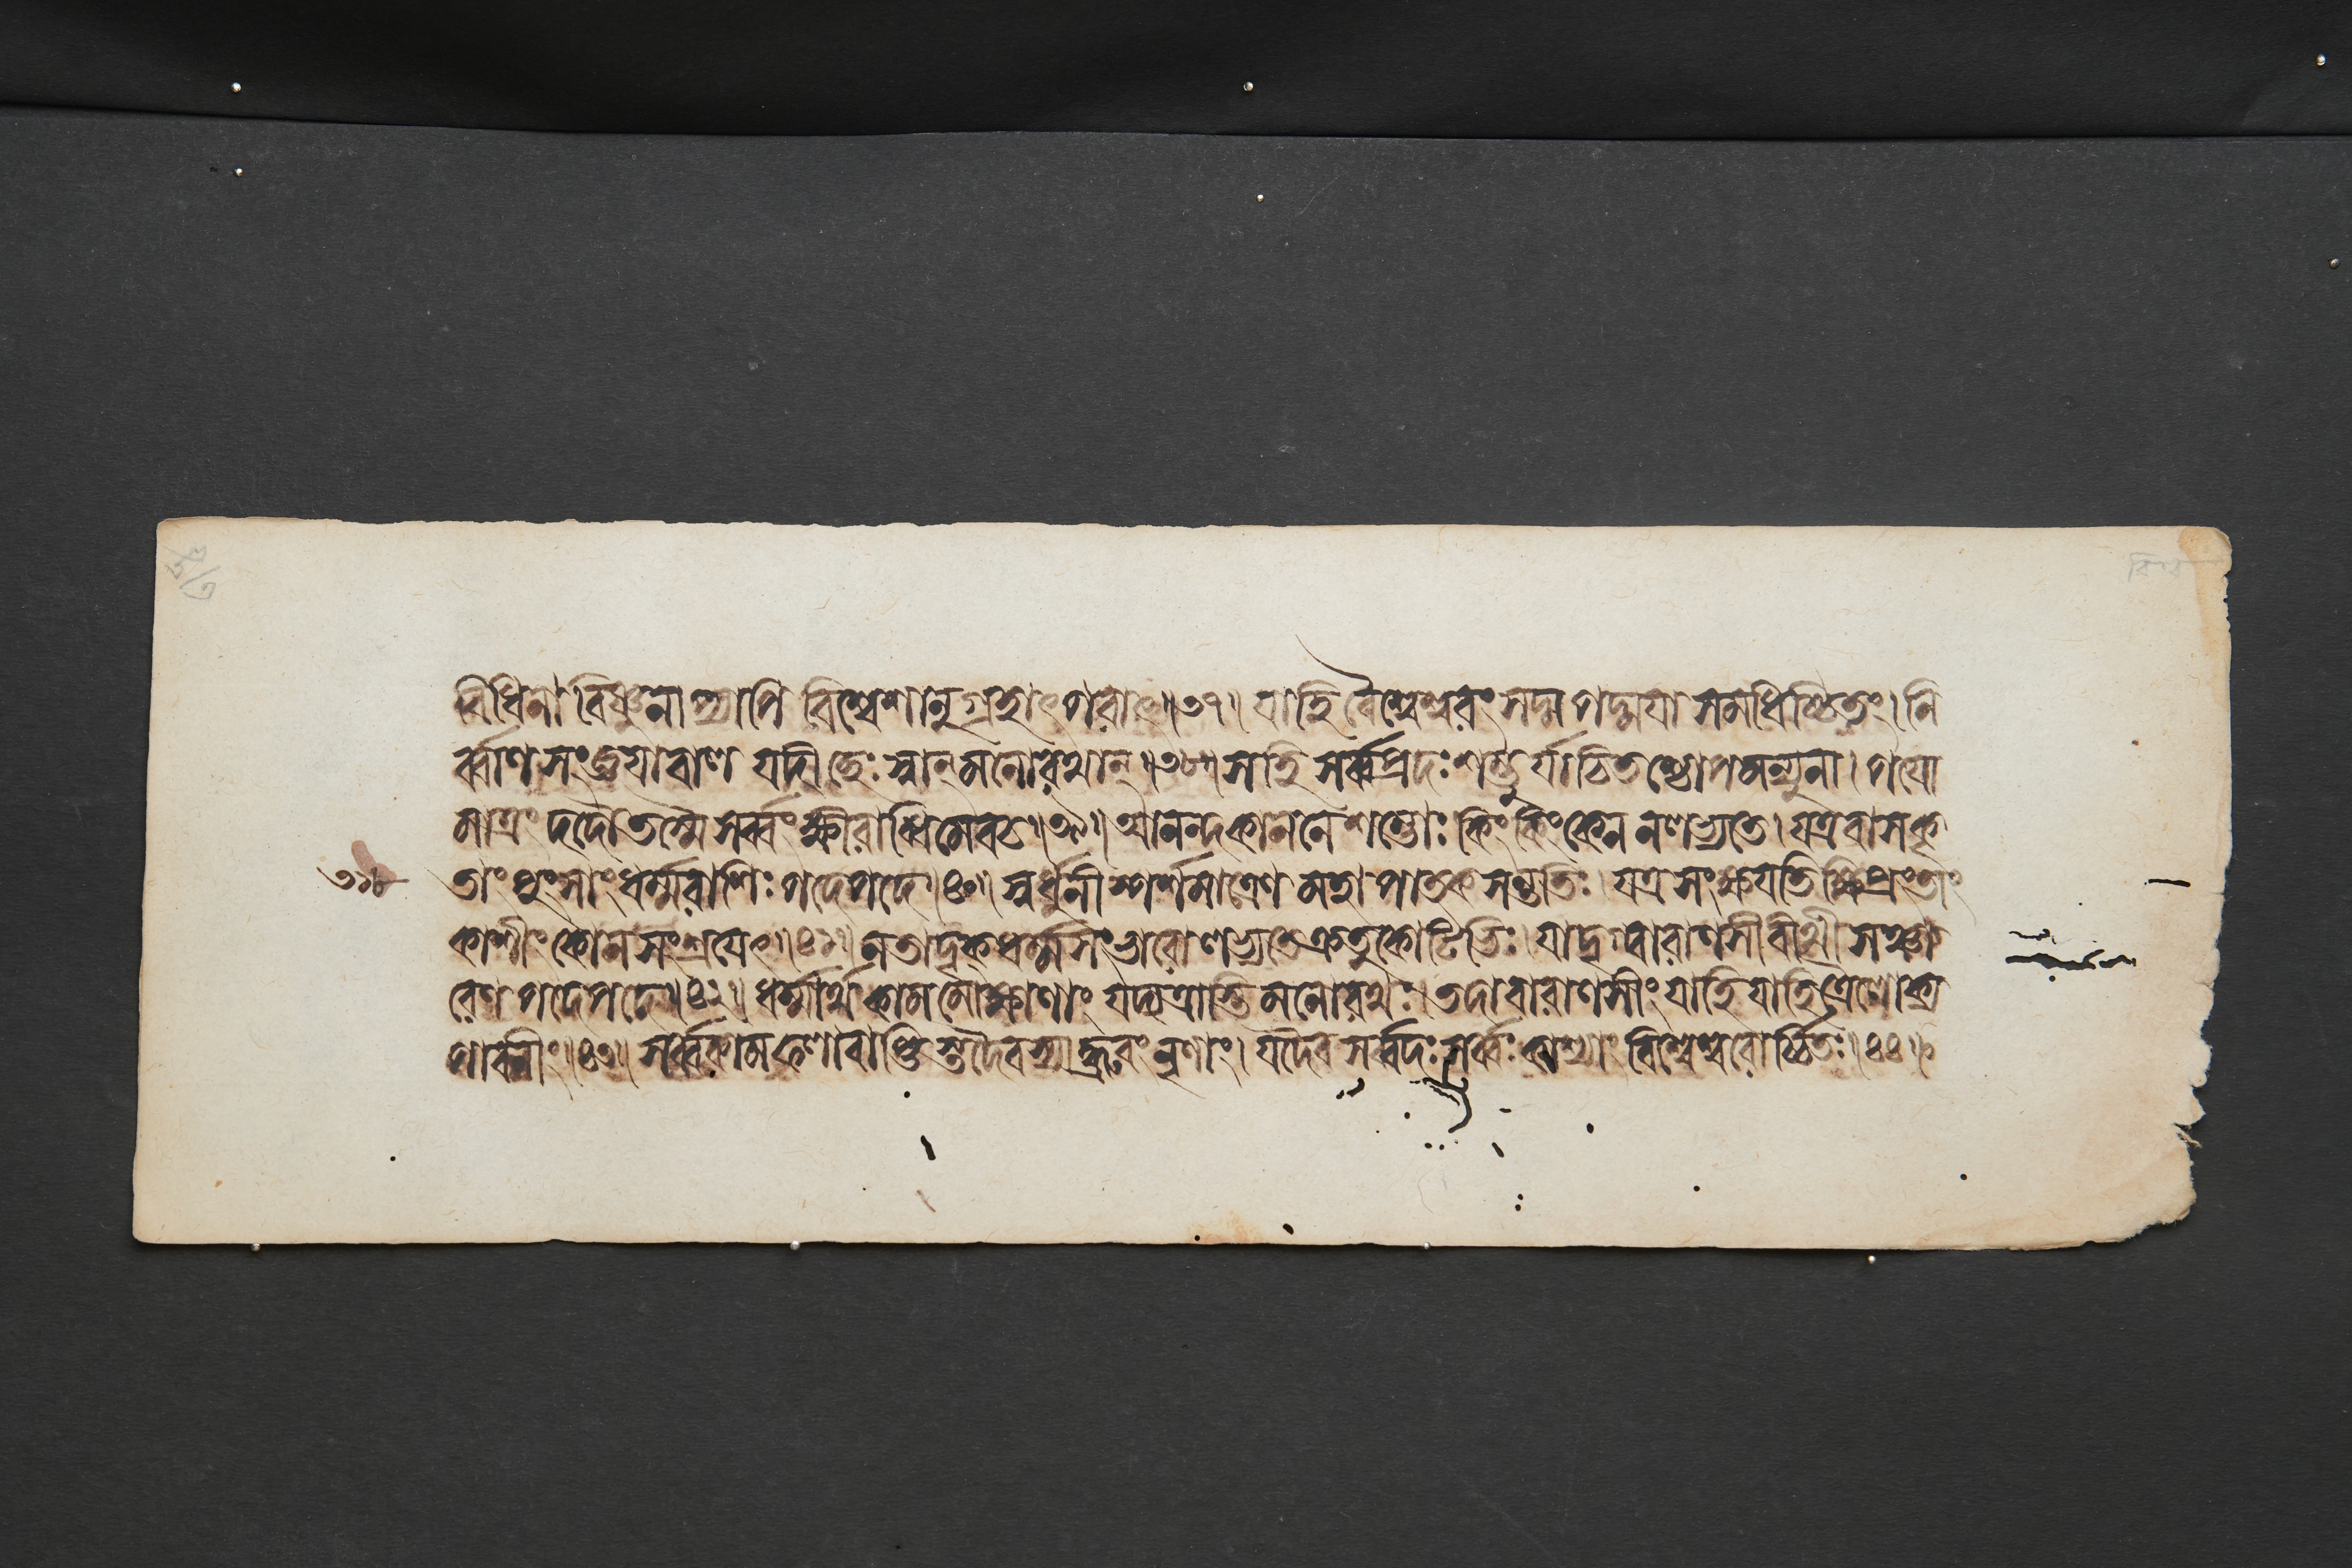 বিধিনা বিষ্ণুনাপ্যাপি বিশ্বেশানুগ্রহাৎপরাৎ॥৩৭॥ যাহি বৈশ্বেশ্বরং সদ্ম পদ্ময়া সমধিষ্ঠিতং। নি
র্ব্বাণসংজ্ঞয়া বাল যদীচ্ছেঃ স্বান্মনোরথান্॥৩৮॥ স হি সর্ব্বপ্রদঃ শম্ভুর্যাচিতশ্চোপমন্যুনা। পয়ো
মাত্রং দদৌ তস্মৈ সর্ব্বং ক্ষীরাব্ধিমেবচ॥৩৯॥ আনন্দকাননে শম্ভোঃ কিং কিং কেন নলভ্যতে। যত্রবাসকৃ
তাং পুংসাং ধর্ম্মরাশিঃ পদেপদে॥৪০॥ স্বর্ধুনীস্পর্শমাত্রেণ মহাপাতকসন্ততিঃ। যত্র সংক্ষয়তি ক্ষিপ্রং তাং
৩১৮
কাশীং কো ন সংশ্রয়েৎ॥৪১॥ নতাদৃক্ধর্ম্মসংভারো লভ্যতে ক্রতুকোটিভিঃ। যাদৃগ্বারাণসীবীথী সঞ্চা
রেণ পদেপদে॥৪২॥ ধর্ম্মার্থকামমোক্ষাণাং যদ্যত্রাস্তি মনোরথঃ। তদা বারাণসীং যাহি যাহি ত্রৈলোক্য
পাবনীং॥৪৩॥ সর্ব্বকামফলাবাপ্তিস্তদৈবস্যাদ্ধ্রুবং নৃণাং। যদৈব সর্ব্বদঃ সর্ব্বঃ কাশ্যাং বিশ্বেশ্বরোর্চ্চিতঃ॥৪৪॥